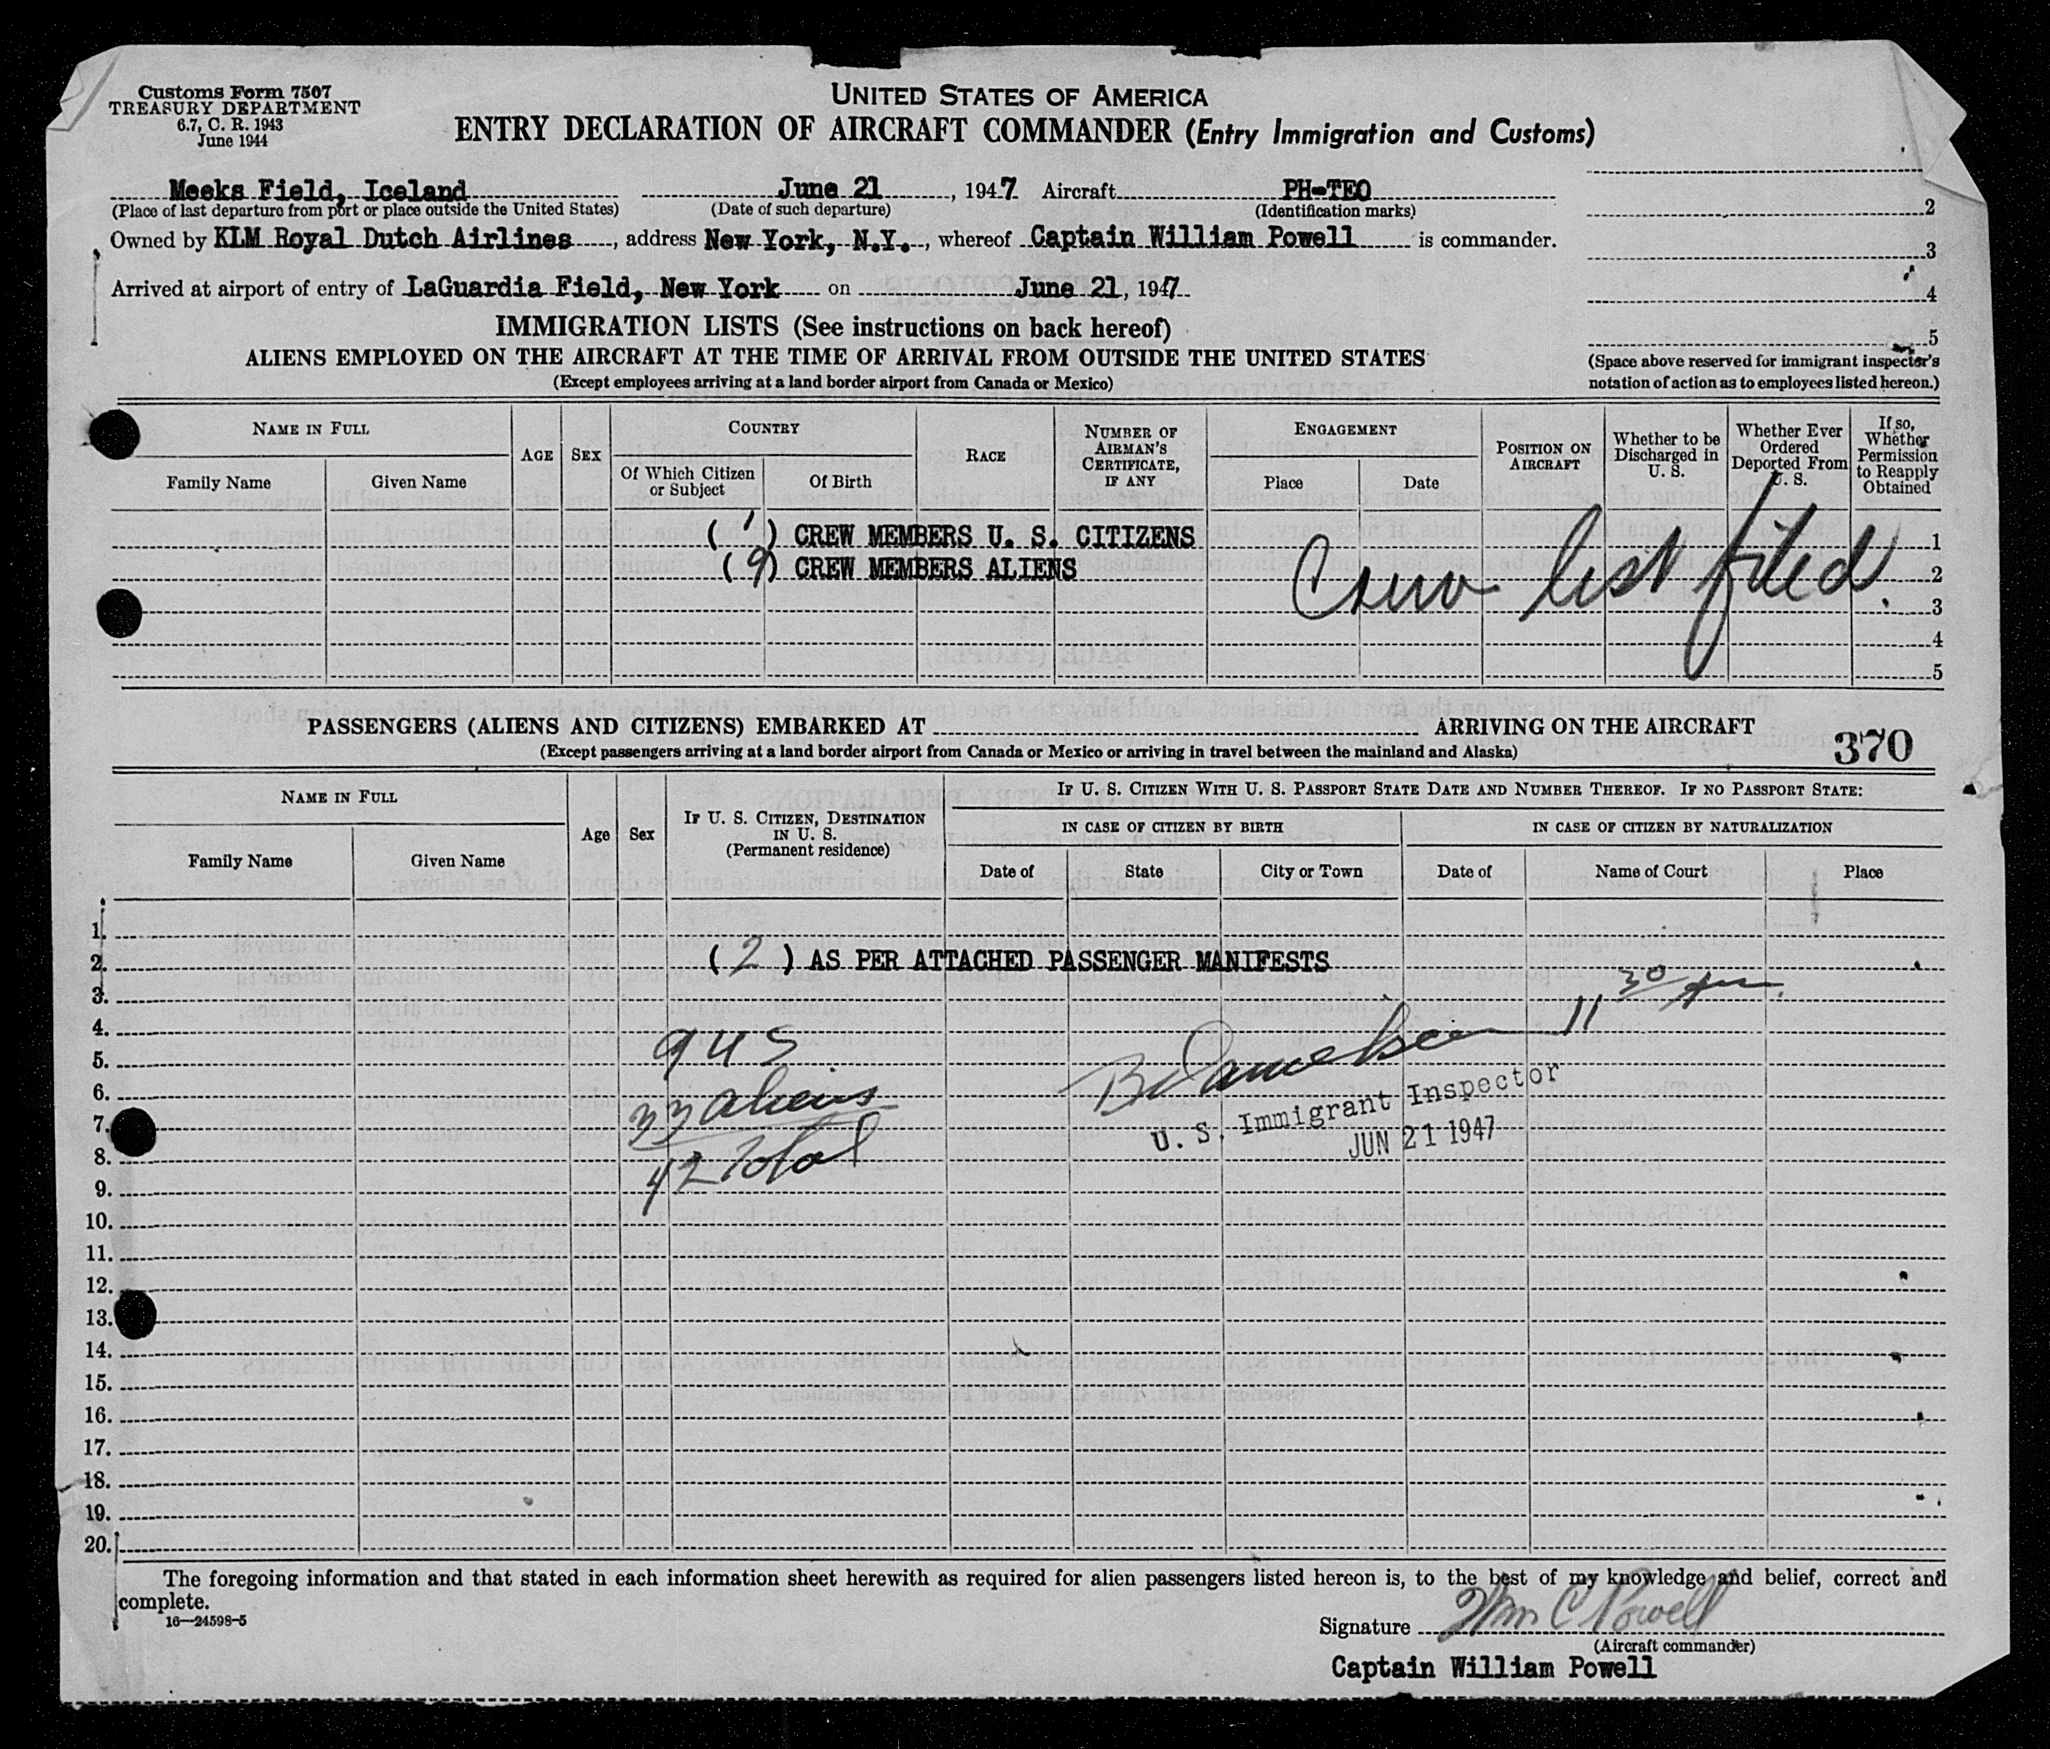 Customs Form 7507
TREASURY DEPARTMENT
6.7, C. R. 1943
June 1944
UNITED STATES OF AMERICA
ENTRY DECLARATION OF AIRCRAFT COMMANDER (Entry Immigration and Customs)
Meeks Field, Iceland June 21, 1947 Aircraft PH-TEO
(Place of last departure from port or place outside the United States) (Date of such departure) (Identification marks)
2
Owned by KLM Royal Dutch Airlines, address New York, N.Y., whereof Captain William Powell is commander.
3
Arrived at airport of entry of LaGuardia Field, New York on June 21, 1947
4
IMMIGRATION LISTS (See instructions on back hereof)
5
ALIENS EMPLOYED ON THE AIRCRAFT AT THE TIME OF ARRIVAL FROM OUTSIDE THE UNITED STATES
(Except employees arriving at a land border airport from Canada or Mexico)
(Space above reserved for immigrant inspector's
notation of action as to employees listed hereon.)
NAME IN FULL
Family Name Given Name
AGE SEX
COUNTRY
Of Which Citizen or Subject Of Birth
RACE
NUMBER OF AIRMAN'S CERTIFICATE, IF ANY
ENGAGEMENT
Place Date
POSITION ON AIRCRAFT
Whether to be Discharged in U. S.
Whether Ever Ordered Deported From U. S.
If so, Whether Permission to Reapply Obtained
( 1 ) CREW MEMBERS U. S. CITIZENS 1
( 9 ) CREW MEMBERS ALIENS 2
Crew list filed
3
4
5
PASSENGERS (ALIENS AND CITIZENS) EMBARKED AT ARRIVING ON THE AIRCRAFT
370
(Except passengers arriving at a land border airport from Canada or Mexico or arriving in travel between the mainland and Alaska)
NAME IN FULL
Family Name Given Name
Age Sex
IF U. S. CITIZEN, DESTINATION IN U. S.
(Permanent residence)
IF U. S. CITIZEN WITH U. S. PASSPORT STATE DATE AND NUMBER THEREOF. IF NO PASSPORT STATE:
IN CASE OF CITIZEN BY BIRTH IN CASE OF CITIZEN BY NATURALIZATION
Date of State City or Town Date of Name of Court Place
1.
2. ( 2 ) AS PER ATTACHED PASSENGER MANIFESTS
3. 11 30
4.
5. 9 US
6. 33 aliens
U. S. Immigrant Inspector
7.
JUN 21 1947
8. 42 Total
9.
10.
11.
12.
13.
14.
15.
16.
17.
18.
19.
20.
The foregoing information and that stated in each information sheet herewith as required for alien passengers listed hereon is, to the best of my knowledge and belief, correct and
complete.
16—24598-5
Signature Wm C Powell
(Aircraft commander)
Captain William Powell